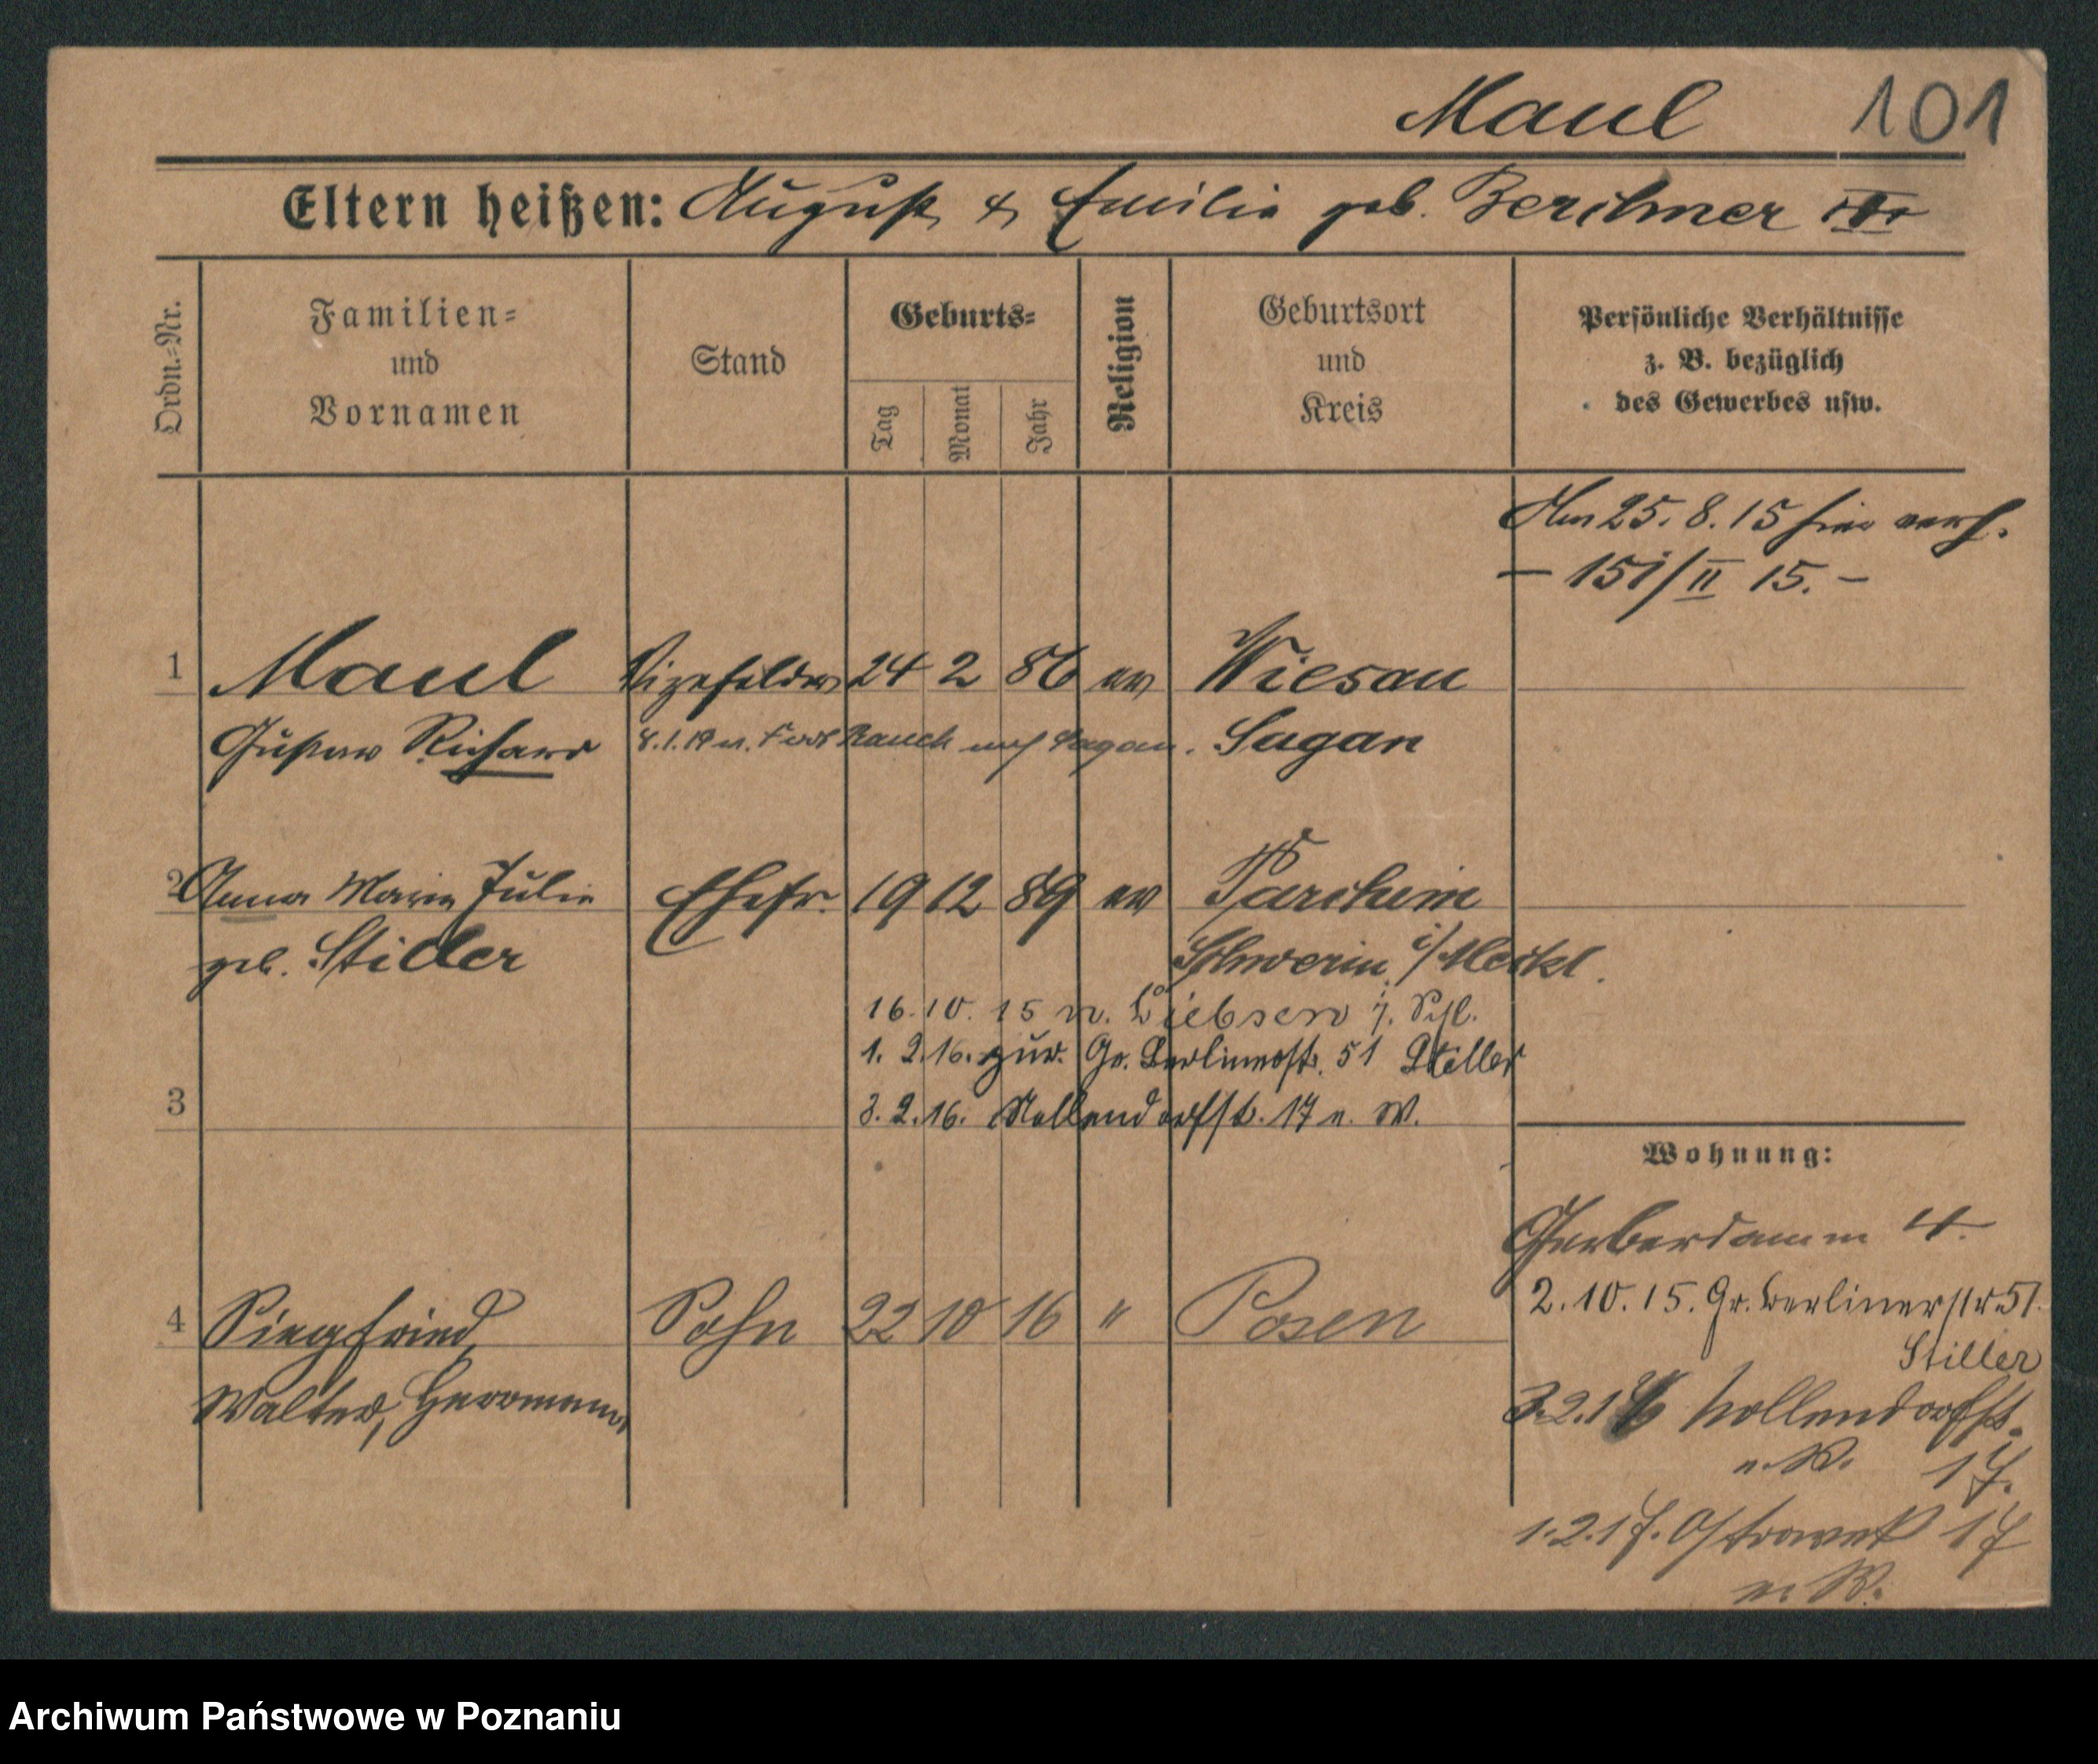 Maul 101
Eltern heißen: August & Emilie geb. Berchner
Ordn.-Nr.
Familien-
und
Vornamen
Stand
Geburts-
Tag
Monat
Jahr
Religion
Geburtsort
und
Kreis
Persönliche Verhältnisse
z. B. bezüglich
des Gewerbes usw.
Am 25. 8. 15 hier verh.
— 151/II 15. —
1 Maul Vizefeldw 24 2 86 ev Wiesau
Gustav Richard 8. 1. 19 n. Fort Rauch nach Sagan. Sagan
2 Anna Marie Julie Ehefr. 19 12 89 ev Parchim
geb. Stiller Schwerin i/Meckl.
16. 10. 15 n. Liebsen j. Schl.
1. 2. 16. zur. Gr. Berlinerstr. 51 Stiller
3
3. 2. 16. Nollendorfstr. 17 e. W.
Wohnung:
Gerberdamm 4.
2. 10. 15. Gr. Berlinerstr. 51.
Stiller
4 Siegfried, Sohn 22 10 16 " Posen
Walter, Herrmann,
3. 2. 16 Nollendorfstr.
e. W. 17.
1. 2. 17. 17
e. W.